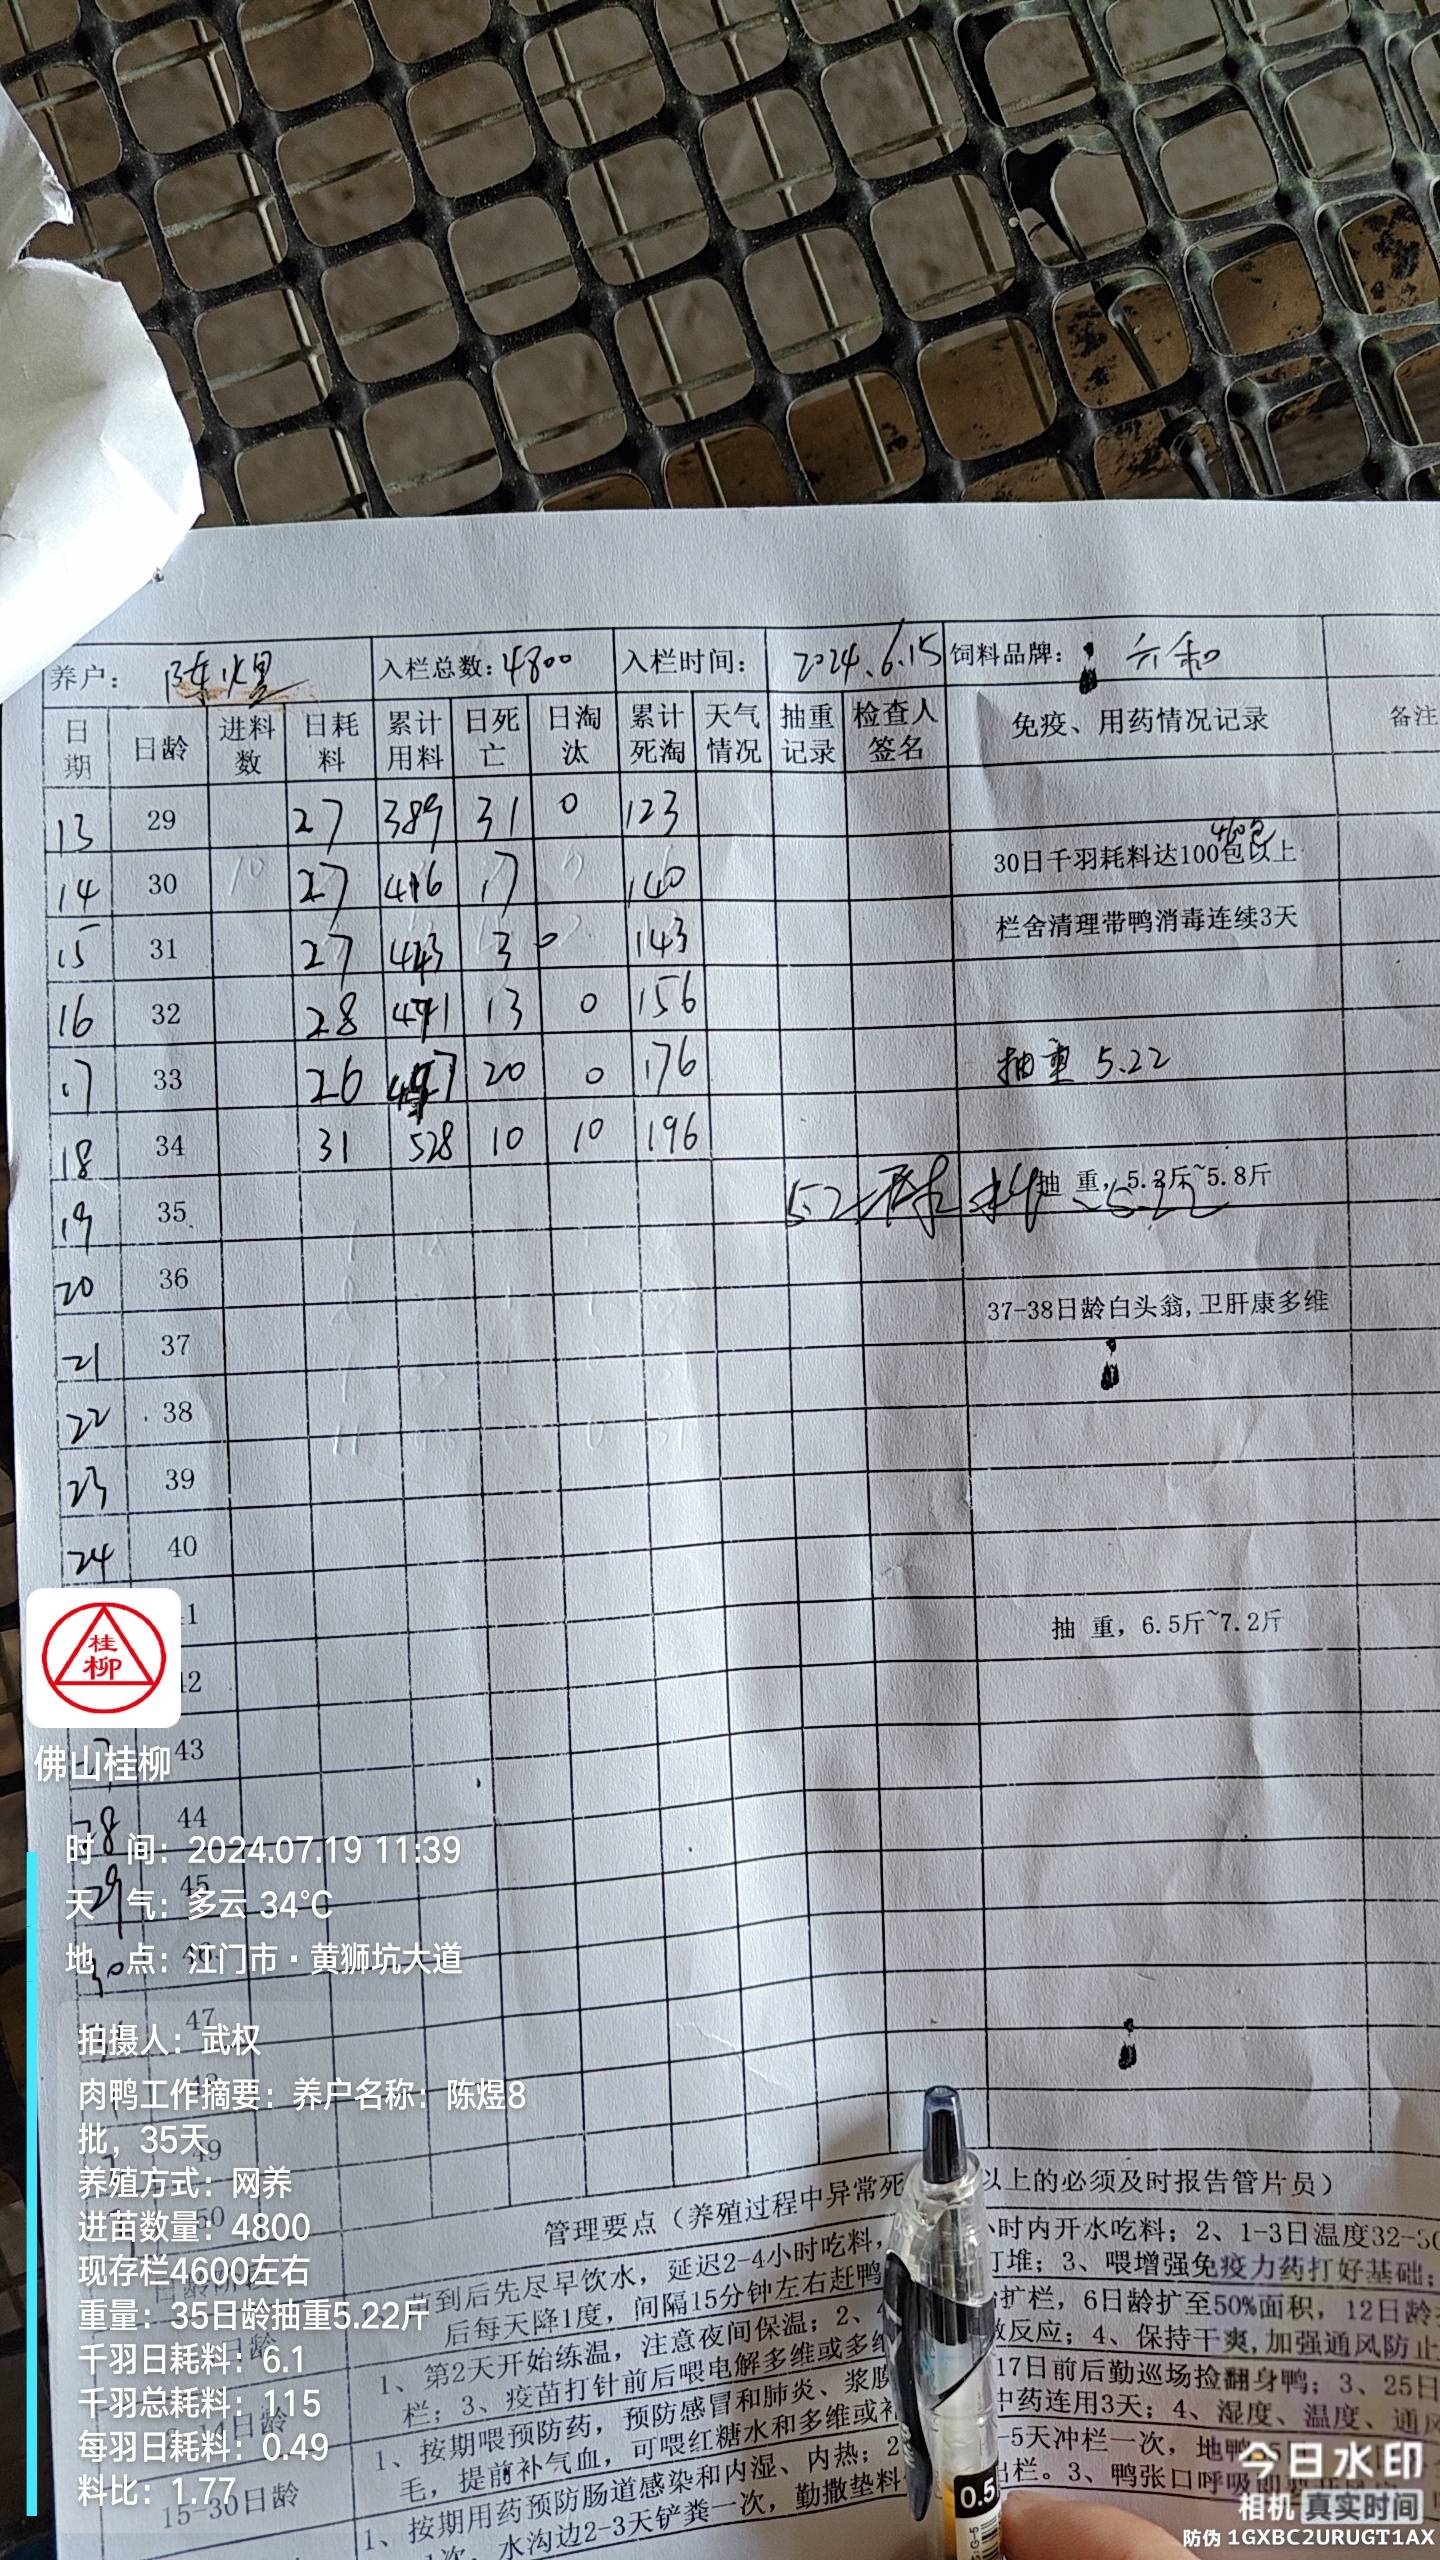 养户: 陈煜 入栏总数:4800 入栏时间: 2024.6.15 饲料品牌: 六和
日期 日龄 进料数 日耗料 累计用料 日死亡 日淘汰 累计死淘 天气情况 抽重记录 检查人签名 免疫、用药情况记录 备注
13 29 27 389 31 0 123
460包
14 30 27 416 17 140 30日千羽耗料达100包以上
15 31 27 443 3 0 143 栏舍清理带鸭消毒连续3天
16 32 28 471 13 0 156
17 33 26 497 20 0 176 抽重 5.22
18 34 31 528 10 10 196
19 35 抽 重, 5.2斤~5.8斤
20 36
21 37 37-38日龄白头翁,卫肝康多维
22 38
23 39
24 40
抽 重, 6.5斤~7.2斤
43
28 44
29 45
30 46
47
49
50
桂柳
佛山桂柳
时 间: 2024.07.19 11:39
天 气: 多云 34℃
地 点: 江门市·黄狮坑大道
拍摄人: 武权
肉鸭工作摘要: 养户名称: 陈煜8
批, 35天
养殖方式: 网养
进苗数量: 4800
现存栏4600左右
重量: 35日龄抽重5.22斤
千羽日耗料: 6.1
千羽总耗料: 115
每羽日耗料: 0.49
料比: 1.77
管理要点(养殖过程中异常死 以上的必须及时报告管片员)
苗到后先尽早饮水, 延迟2-4小时吃料, 小时内开水吃料; 2、1-3日温度32-30
后每天降1度, 间隔15分钟左右赶鸭 打堆; 3、喂增强免疫力药打好基础;
1、第2天开始练温, 注意夜间保温; 2、 扩栏, 6日龄扩至50%面积, 12日龄
栏; 3、疫苗打针前后喂电解多维或多维 激反应; 4、保持干爽,加强通风防止
1、按期喂预防药, 预防感冒和肺炎、浆膜 17日前后勤巡场捡翻身鸭; 3、25日
毛, 提前补气血, 可喂红糖水和多维或补 中药连用3天; 4、湿度、温度、通风
15-30日龄
1、按期用药预防肠道感染和内湿、内热; 2 -5天冲栏一次, 地鸭
1次, 水沟边2-3天铲粪一次, 勤撒垫料 出栏。3、鸭张口呼吸
0.5
今日水印
相机 真实时间
防伪 1GXBC2URUGT1AX